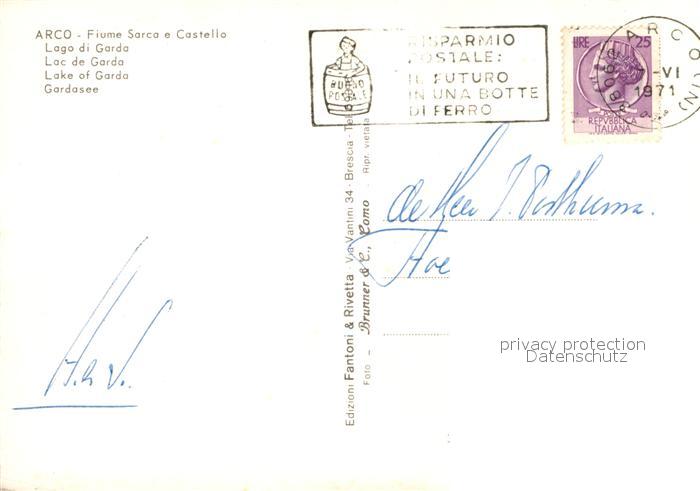 ARCO - Fiume Sarca e Castello
Lago di Garda
Lac de Garda
Lake of Garda
Gardasee
RISPARMIO
POSTALE:
IL FUTURO
IN UNA BOTTE
DI FERRO
BUONO
POSTALE
LIRE 25
REPVBBLICA
ITALIANA
ARCO (TN)
-VI
1971
Edizioni Fantoni & Rivetta - Via Vantini 34 - Brescia - Tel
Foto - Brunner & C., Como - Ripr. vietata
de Heer J. Posthuma.
privacy protection
Datenschutz